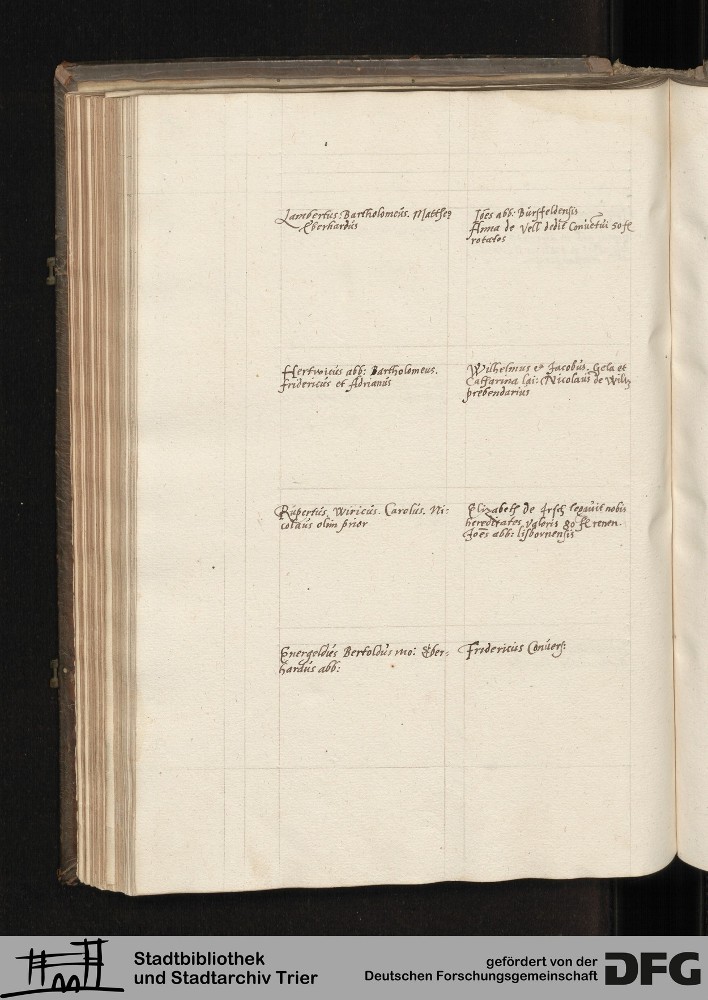 Lambertus. Bartholomeus. Mattheꝰ
Eberhardus
Joẽs abb: Bursfeldensis
Anna de dedit Conuẽtui 50 fl
rotatos
Hertwicus abb: Bartholomeus.
fridericus et Adrianus
Wilhelmus et Jacobus. Gela et
Catharina lai: Nicolaus de
prebendarius
Rupertus. Wiricus. Carolus. Ni-
colaus olim prior
Elizabeth de legauit nobis
hereditates valoris 80 fl renen.
Joẽs abb: lisbornensis
Bertoldus mo: Eber-
hardus abb:
Fridericus Conuers:
Stadtbibliothek
und Stadtarchiv Trier
gefördert von der
Deutschen Forschungsgemeinschaft
DFG